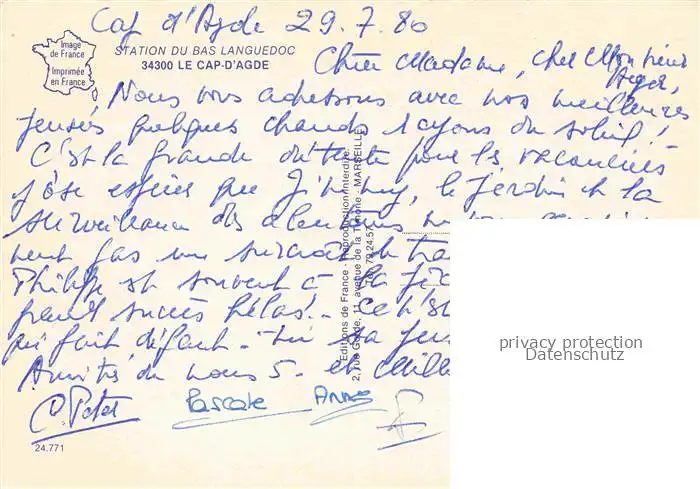 Cap d'Agde 29.7.80
Image de France
Imprimée en France
STATION DU BAS LANGUEDOC
34300 LE CAP-D'AGDE
Chère Madame, cher Monsieur
Nous vous adressons avec nos meilleures
pensées quelques chauds rayons du soleil!
C'est la grande détente pour les vacanciers
j'ose espérer que Jimmy, le jardin et la
surveillance des alentours
pas un surcroît de
Philippe est souvent à la
grand succès hélas!.. Ce n'est
qui fait défaut.
Amitiés de nous 5. et
C. Petet Pascale Annes
24.771
Editions de France - Reproduction interdite
2, rue Goede, 11, avenue de la Timone - MARSEILLE
Tél. 79.24.57
privacy protection
Datenschutz